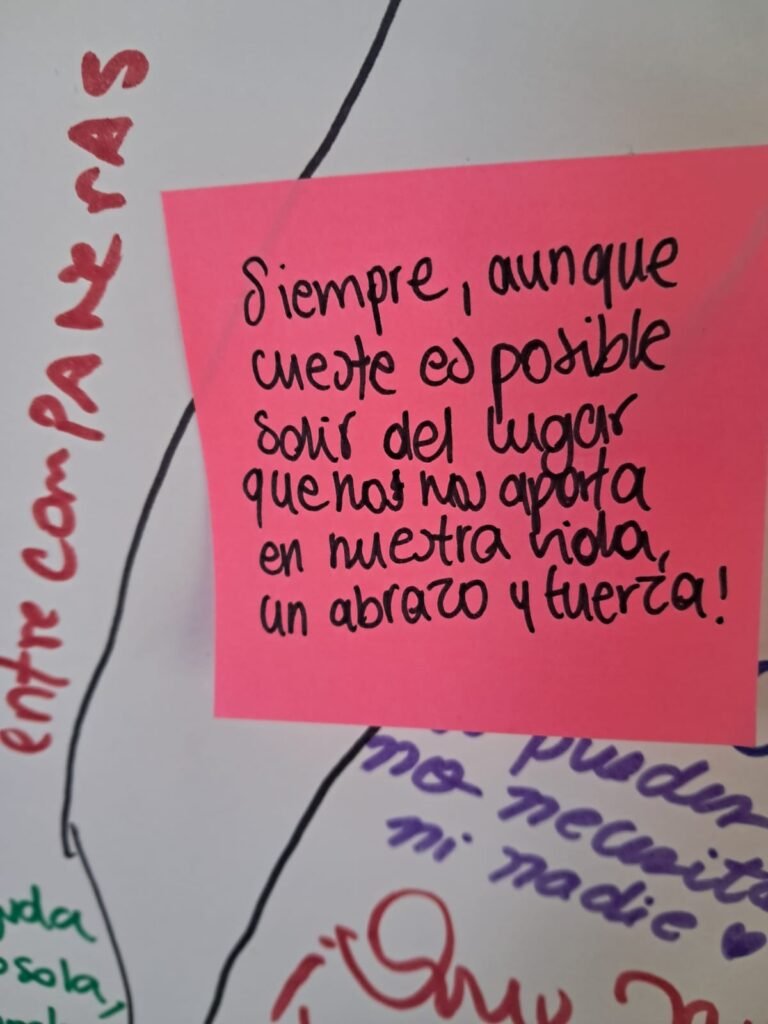 entre comPAÑerAS
Siempre, aunque
cueste es posible
salir del lugar
que nos nos aporta
en nuestra vida,
un abrazo y fuerza!
puedes
no necesita
ni nadie ♥
uda
sola,